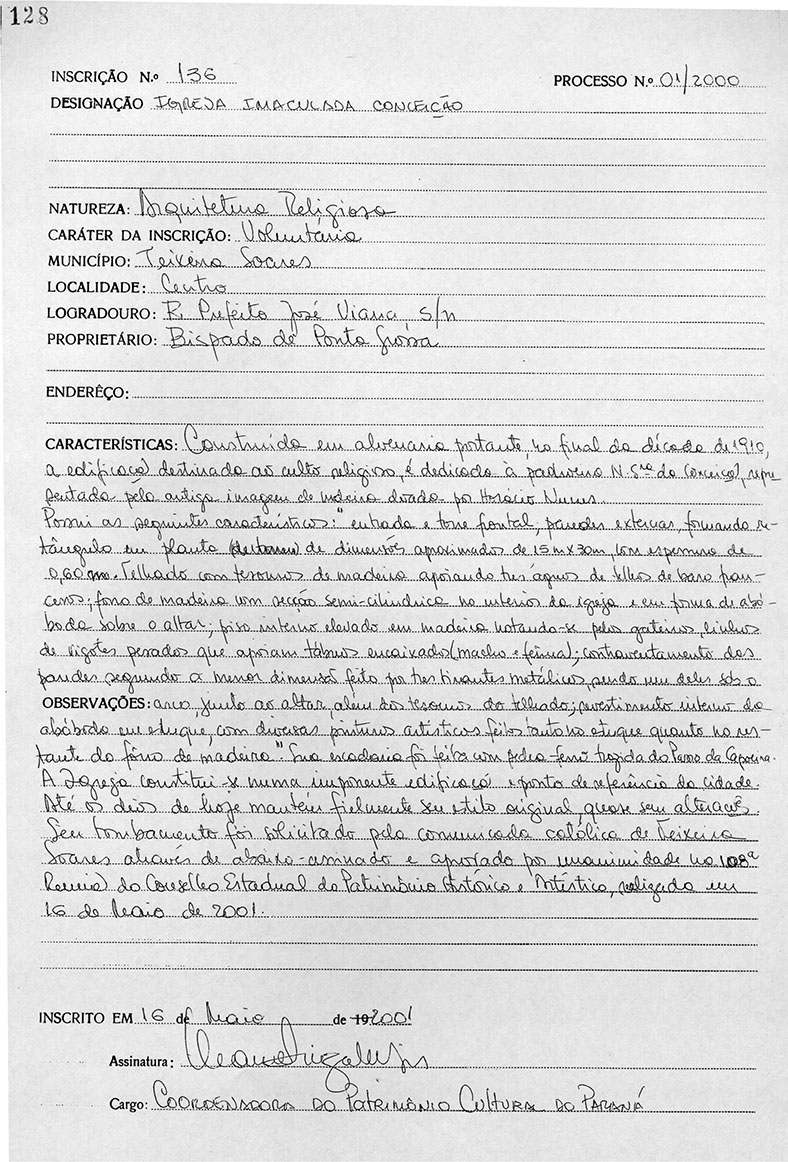 128
INSCRIÇÃO N.º 136 PROCESSO N.º 01/2000
DESIGNAÇÃO IGREJA IMACULADA CONCEIÇÃO
NATUREZA: Arquitetura Religiosa
CARÁTER DA INSCRIÇÃO: Voluntária
MUNICÍPIO: Teixeira Soares
LOCALIDADE: Centro
LOGRADOURO: R. Prefeito José Viana, s/n
PROPRIETÁRIO: Bispado de Ponta Grossa
ENDERÊÇO:
CARACTERÍSTICAS: Construída em alvenaria portante, no final da década de 1910,
a edificação destinada ao culto religioso, é dedicada à padroeira N. Sra da Conceição, repre-
sentada pela antiga imagem de madeira doada por Horácio Nunes.
Possui as seguintes características: "entrada e torre frontal, paredes externas, formando re-
tângulo em planta de dimensões aproximadas de 15m x 30m, com espessura de
0,60m. Telhado com tesouras de madeira apoiando tres aguas de telhas de barro fran-
cesas; forro de madeira com secção semi-cilíndrica no interior da igreja e em forma de abó-
boda sobre o altar; piso interno elevado em madeira notando-se pelas gateiras, linhas
de vigotes pesados que apoiam tábuas encaixadas (macho e fêmea); contraventamento das
paredes segundo a menor dimensão feito por tres tirantes metálicos, sendo um deles sob o
OBSERVAÇÕES: arco junto ao altar, além das tesouras do telhado; revestimento interno da
abóboda em estuque, com diversas pinturas artísticas feitas tanto no estuque quanto no res-
tante do fôrro de madeira". Sua escadaria foi feita com pedra ferro trazida do Passo da Capoeira.
A Igreja constitui-se numa imponente edificação e ponto de referência da cidade.
Até os dias de hoje mantem fielmente seu estilo original, quase sem alterações.
Seu tombamento foi solicitado pela comunidade católica de Teixeira
Soares através de abaixo-assinado e aprovado por unanimidade na 108ª
Reunião do Conselho Estadual do Patrimônio Histórico e Artístico, realizada em
16 de Maio de 2001.
INSCRITO EM 16 de Maio de 19 2001
Assinatura:
Cargo: COORDENADORA DO PATRIMÔNIO CULTURA DO PARANÁ